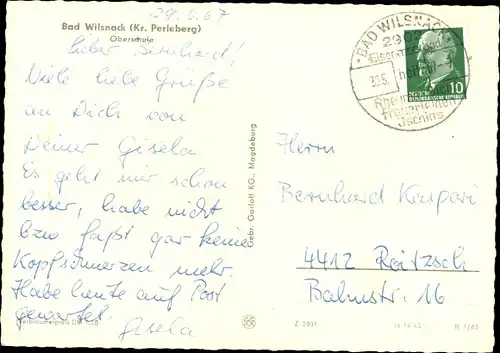 29.5.67
Bad Wilsnack (Kr. Perleberg)
Oberschule
Lieber Bernhard!
Viele liebe Grüße
an Dich von
Deiner Gisela
Es geht mir schon
besser, habe nicht
bzw. fast gar keine
Kopfschmerzen mehr.
Habe heute auf Post
gewartet.
Gisela
Verbraucherpreis DM
Gebr. Garloff KG., Magdeburg
BAD WILSNACK
DEUTSCHE
DEMOKRATISCHE REPUBLIK
10
Ischias
Herrn
Bernhard Kaspari
4412 Roitzsch
Bahnstr. 16
Z 2031
IV 14 45
N 1/62